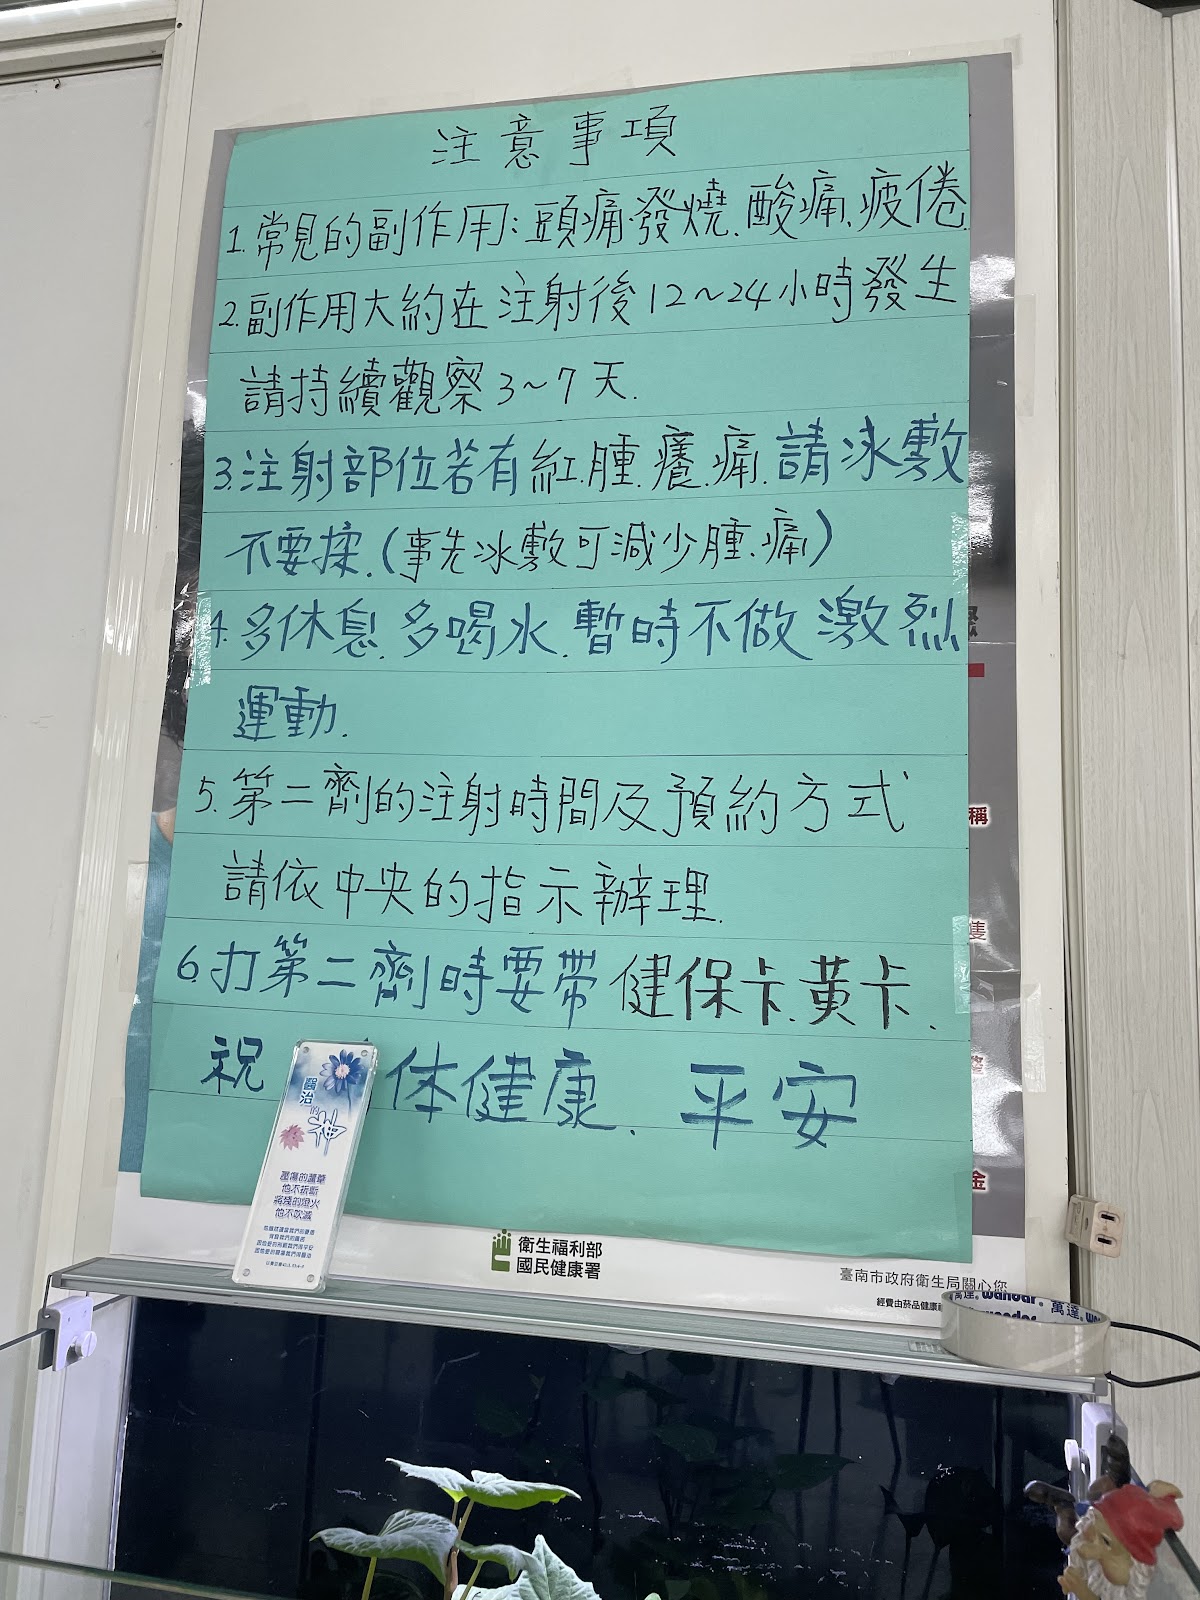 注意事項
1.常見的副作用:頭痛.發燒.酸痛.疲倦
2.副作用大約在注射後12~24小時發生
請持續觀察3~7天.
3.注射部位若有紅.腫.癢.痛.請冰敷
不要揉.(事先冰敷可減少腫.痛)
4.多休息.多喝水.暫時不做激烈
運動.
5.第二劑的注射時間及預約方式
請依中央的指示辦理.
6.打第二劑時要帶健保卡.黃卡.
祝 体健康.平安
醫治
的
神
壓傷的蘆葦
他不折斷
將殘的燈火
他不吹滅
衛生福利部
國民健康署
臺南市政府衛生局關心您
經費由菸品健康
稱
隻
金
萬達® wandar® 萬達®